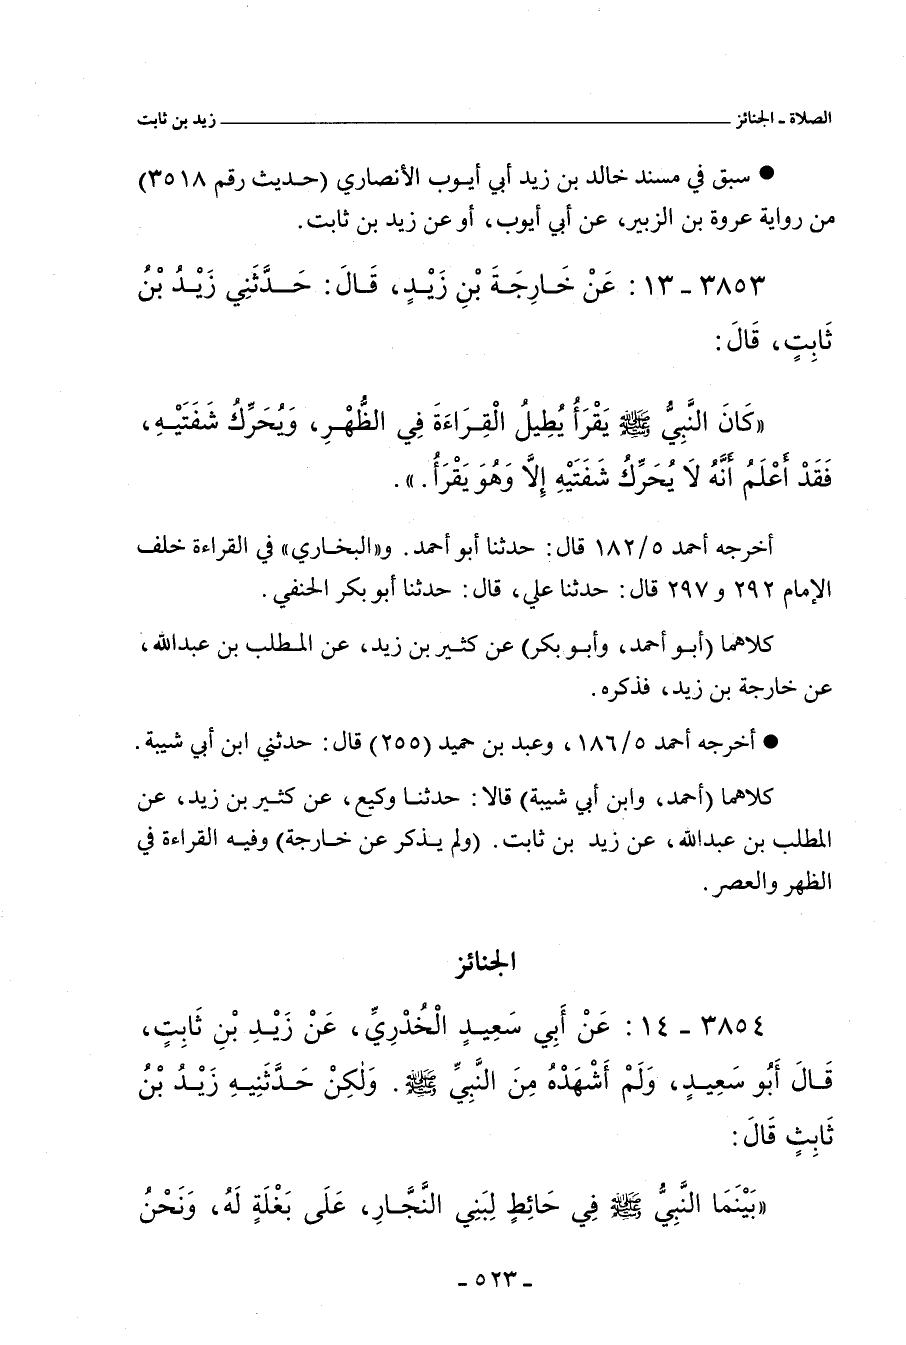 الصلاة - الجنائز زيد بن ثابت
● سبق في مسند خالد بن زيد أبي أيوب الأنصاري (حديث رقم ٣٥١٨)
من رواية عروة بن الزبير، عن أبي أيوب، أو عن زيد بن ثابت.
٣٨٥٣ - ١٣ : عَنْ خَارِجَةَ بْنِ زَيْدٍ، قَالَ: حَدَّثَنِي زَيْدُ بْنُ
ثَابِتٍ، قَالَ:
«كَانَ النَّبِيُّ ﷺ يَقْرَأُ يُطِيلُ الْقِرَاءَةَ فِي الظُّهْرِ، وَيُحَرِّكُ شَفَتَيْهِ،
فَقَدْ أَعْلَمُ أَنَّهُ لَا يُحَرِّكُ شَفَتَيْهِ إِلَّا وَهُوَ يَقْرَأُ. ».
أخرجه أحمد ١٨٢/٥ قال: حدثنا أبو أحمد. و«البخاري» في القراءة خلف
الإمام ٢٩٢ و ٢٩٧ قال: حدثنا علي، قال: حدثنا أبو بكر الحنفي.
كلاهما (أبو أحمد، وأبو بكر) عن كثير بن زيد، عن المطلب بن عبدالله،
عن خارجة بن زيد، فذكره.
● أخرجه أحمد ١٨٦/٥، وعبد بن حميد (٢٥٥) قال: حدثني ابن أبي شيبة.
كلاهما (أحمد، وابن أبي شيبة) قالا: حدثنا وكيع، عن كثير بن زيد، عن
المطلب بن عبدالله، عن زيد بن ثابت. (ولم يذكر عن خارجة) وفيه القراءة في
الظهر والعصر.
الجنائز
٣٨٥٤ - ١٤ : عَنْ أَبِي سَعِيدٍ الْخُدْرِيِّ، عَنْ زَيْدِ بْنِ ثَابِتٍ،
قَالَ أَبُو سَعِيدٍ، وَلَمْ أَشْهَدْهُ مِنَ النَّبِيِّ ﷺ. وَلَكِنْ حَدَّثَنِيهِ زَيْدُ بْنُ
ثَابِتٍ قَالَ:
«بَيْنَمَا النَّبِيُّ ﷺ فِي حَائِطٍ لِبَنِي النَّجَّارِ، عَلَى بَغْلَةٍ لَهُ، وَنَحْنُ
- ٥٢٣ -